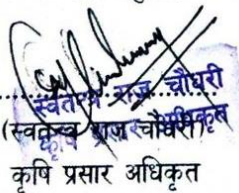 स्वतन्त्र राज चौधरी
कृषि प्रसार अधिकृत
(स्वतन्त्र राज चौधरी)
कृषि प्रसार अधिकृत